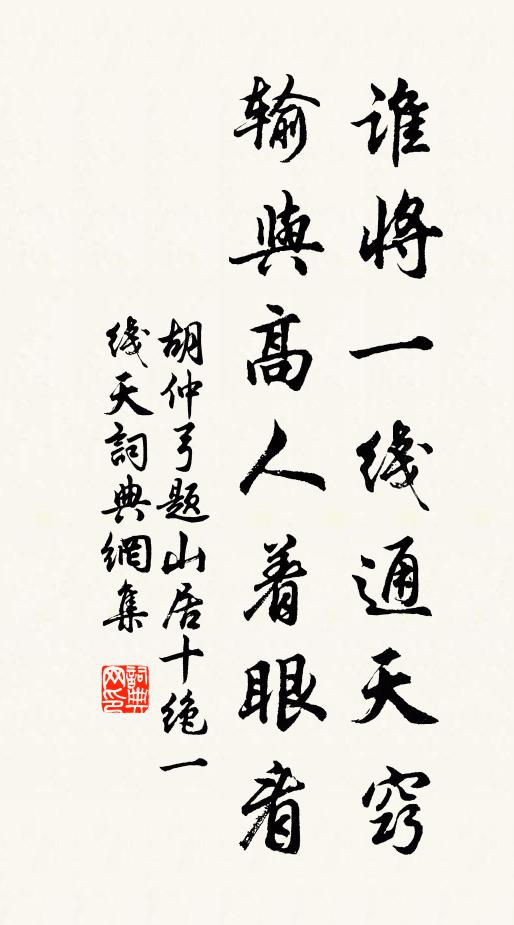 谁将一线通天窍
输与高人着眼看
胡仲弓题山居十绝一
线天词典网集
词典
网印